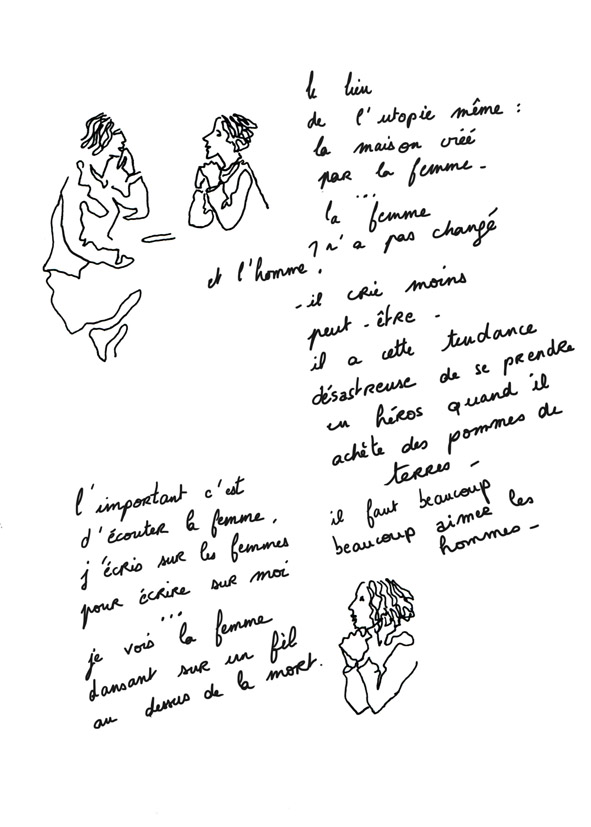 le lieu
de l'utopie même :
la maison créé
par la femme -
...
la femme
n'a pas changé
et l'homme ?
- il crie moins
peut-être -
il a cette tendance
désastreuse de se prendre
en héros quand il
achète des pommes de
terres -
il faut beaucoup
beaucoup aimer les
hommes -
l'important c'est
d'écouter la femme,
j'écris sur les femmes
pour écrire sur moi
...
je vois la femme
dansant sur un fil
au dessus de la mort.